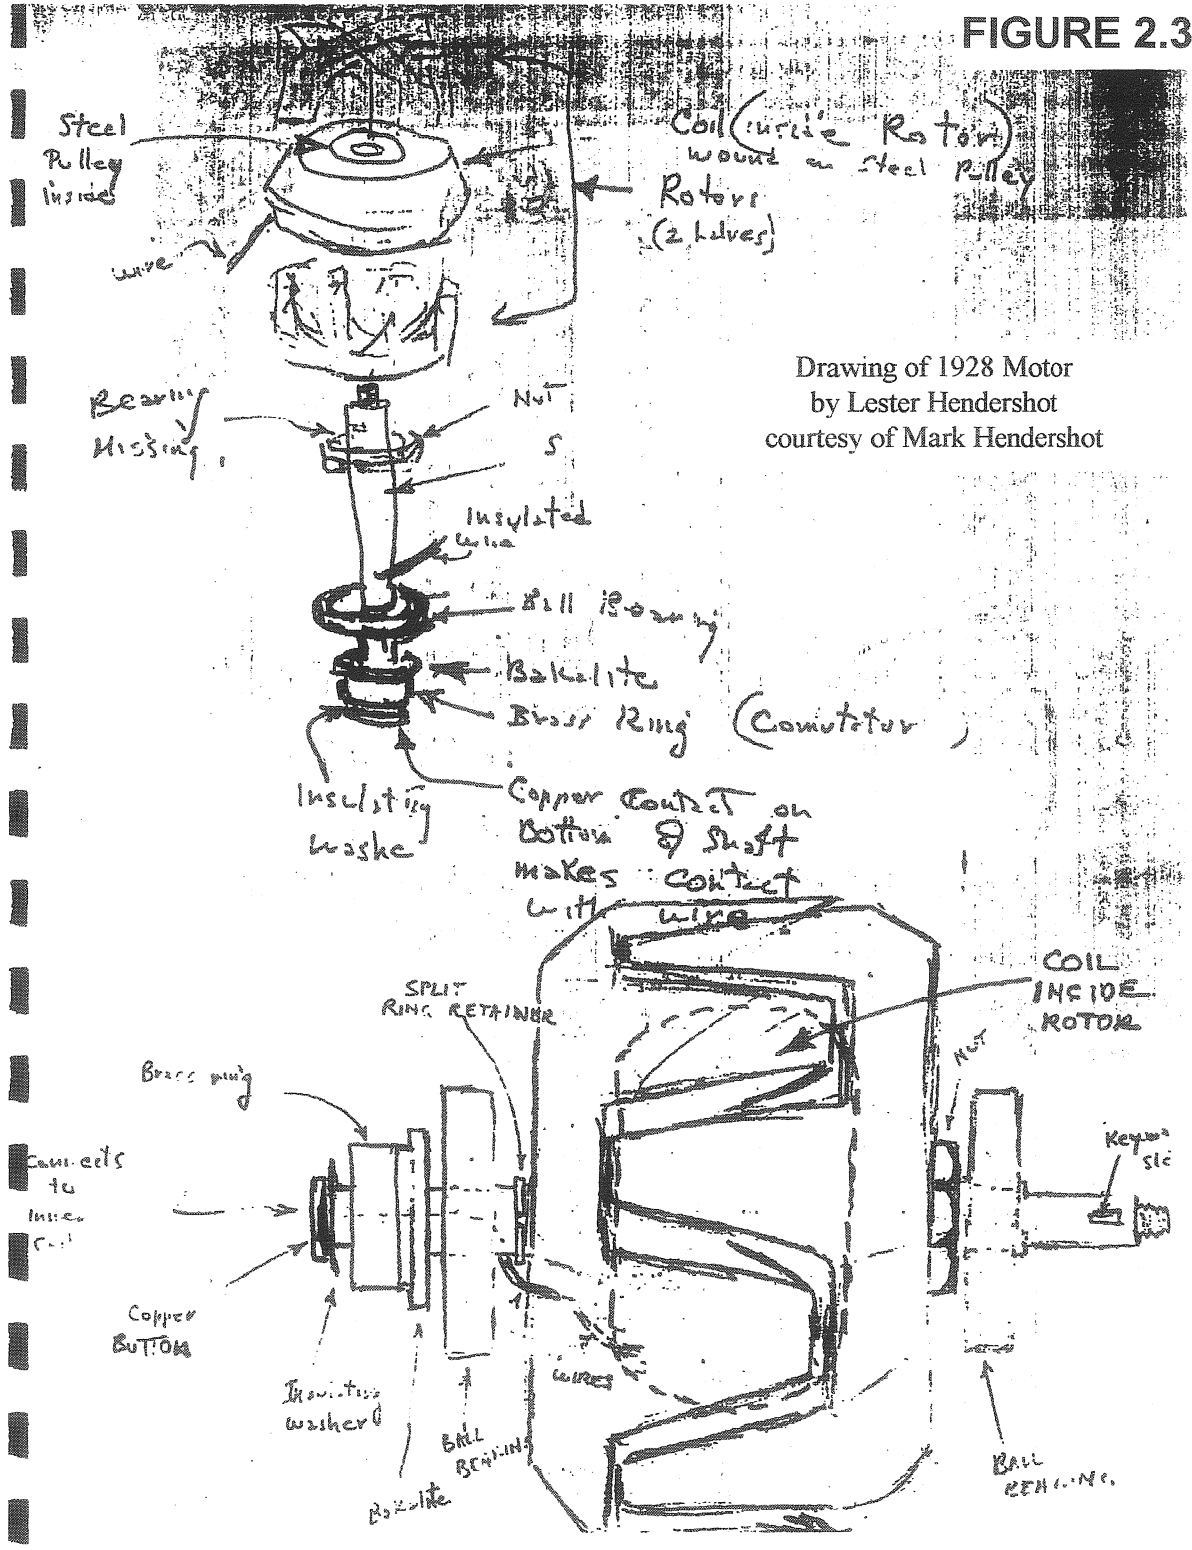 FIGURE 2.3
Steel
Pulley
Inside
Coil (inside Rotor)
wound on Steel Pulley
Rotors
(2 halves)
wire
Drawing of 1928 Motor
by Lester Hendershot
courtesy of Mark Hendershot
Bearing
Missing
Nut
S
Insulated
wire
Ball Bearing
Bakalite
Brass Ring (Comutator)
Insulating
washe
Copper Contact on
Bottom of shaft
makes contact
with wire
COIL
INSIDE
ROTOR
SPLIT
RING RETAINER
NUT
Brass ring
Connects
to
Copper
BUTTON
Insulating
washer
WIRES
BALL
Bakalite
BALL